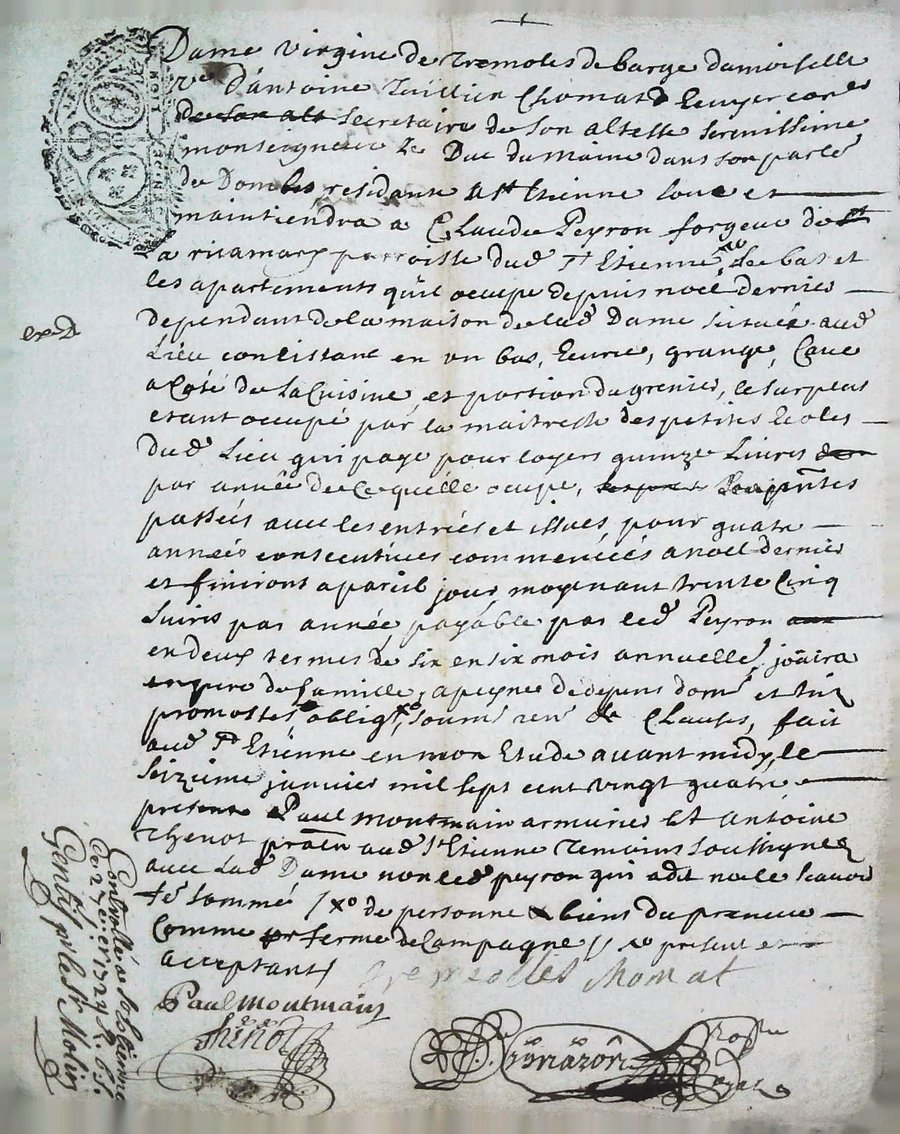 Dame virgine de tremoles de barge damoiselle
Ve d'antoine Chomat Ecuyer
de son alt secretaire de son altesse serenissime
monseigneur Le Duc du maine dans son parle
de Dombes residante a St Etienne loue et
maintiendra a Claude Peyron forgeur de
La ricamary parroisse dud St Etienne, de bas et
les apartements quil occupe depuis noel dernier
dependant de la maison de lad Dame située aud
Lieu consistant en un bas, Ecurie, grange, Cave
a Coté de la Cuisine et portion du grenier, le surplus
etant occupé par la maitresse des petites Ecoles
dud Lieu qui paye pour loyers quinze Livres
par année de ce quelle ocupe,
passées avec les entrées et issues, pour quatre
années consecutives commencées a noel dernier
et finiront a pareil jour moyenant trente Cinq
Livres par année, payable par led Peyron
en deux termes de six en six mois annuelle, joüira
en pere de famille, a peyne de depens dom et
promesses oblig, soum ren Clauses, fait
aud St Etienne en mon Etude avant midy, le
seizieme janvier mil sept cent vingt quatre
present Paul montmain armurier et antoine
thenot praten aud St Etienne temoins soussignez
avec Lad Dame non led peyron qui a dit ne le scavoir
de sommé de personne & biens du preneur
Comme ferme de Campagne present et
acceptant
Tremolles Chomat
Paul montmain
thenot
exp
Controllé a St Etienne
1724
Genost Molin